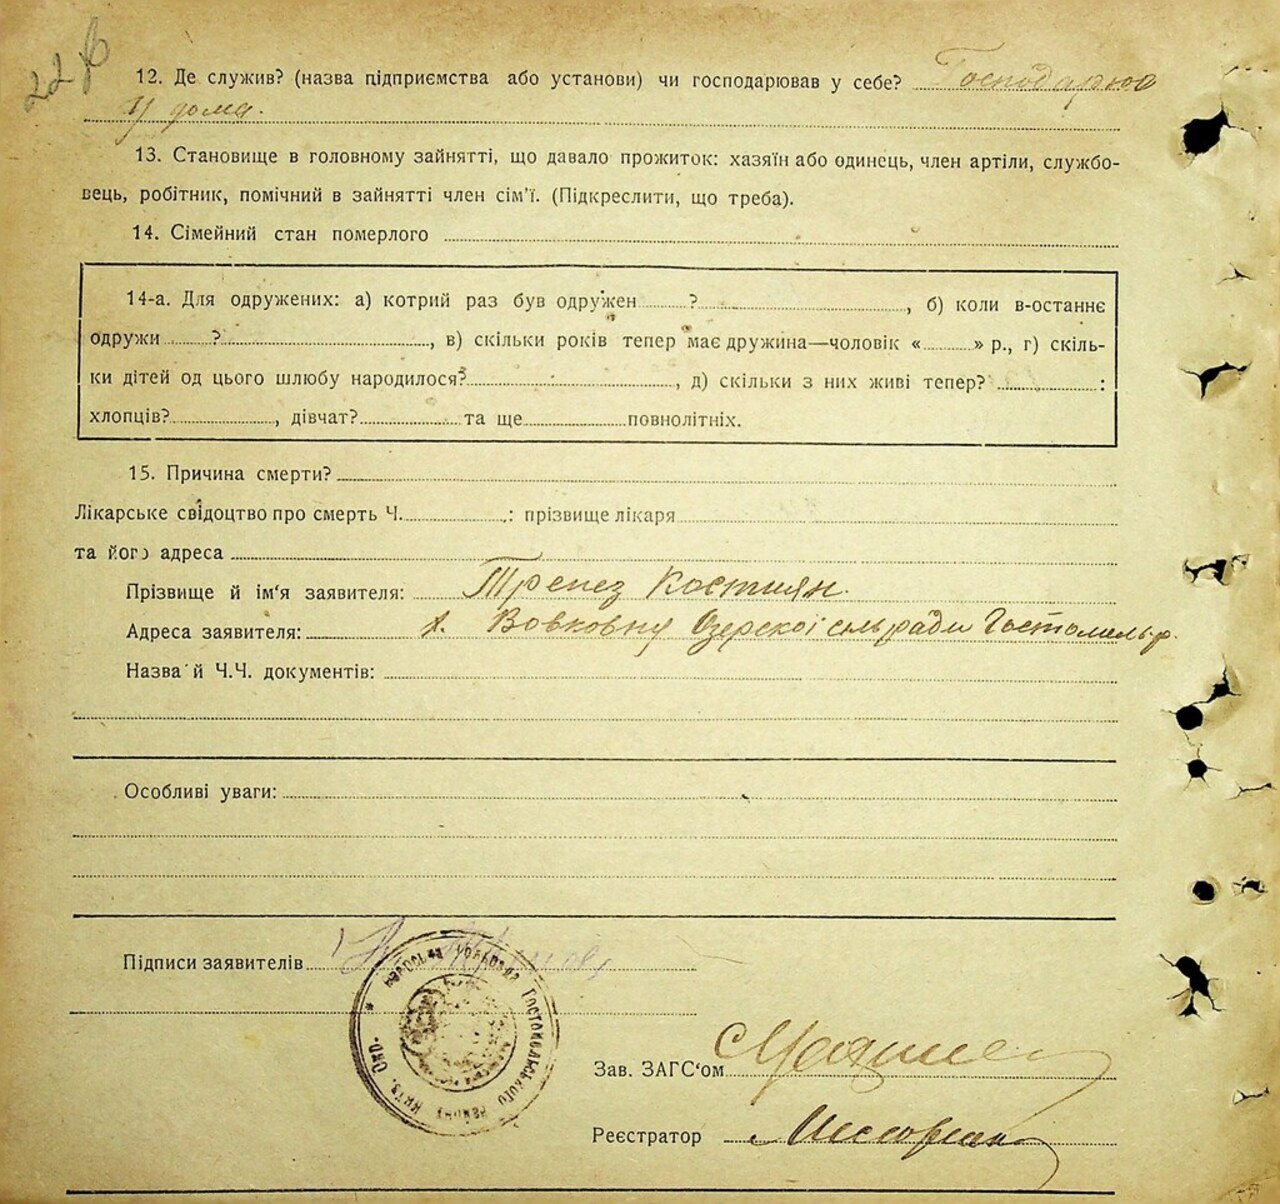 22
12. Де служив? (назва підприємства або установи) чи господарював у себе? Господарює
у дома.
13. Становище в головному зайнятті, що давало прожиток: хазяїн або одинець, член артіли, службо-
вець, робітник, помічний в зайнятті член сім'ї. (Підкреслити, що треба).
14. Сімейний стан померлого
14-а. Для одружених: а) котрий раз був одружен ? , б) коли в-останнє
одружи ? , в) скільки років тепер має дружина—чоловік « » р., г) скіль-
ки дітей од цього шлюбу народилося? , д) скільки з них живі тепер? :
хлопців? , дівчат? та ще повнолітніх.
15. Причина смерти?
Лікарське свідоцтво про смерть Ч. : прізвище лікаря
та його адреса
Прізвище й ім'я заявителя: Трепез Костиян.
Адреса заявителя: х. Вовковну Озерскої сільради Гостомельр.
Назва й Ч.Ч. документів:
Особливі уваги:
Підписи заявителів
Гостомльського району Київ. Окр. *
Зав. ЗАГС'ом
Реєстратор